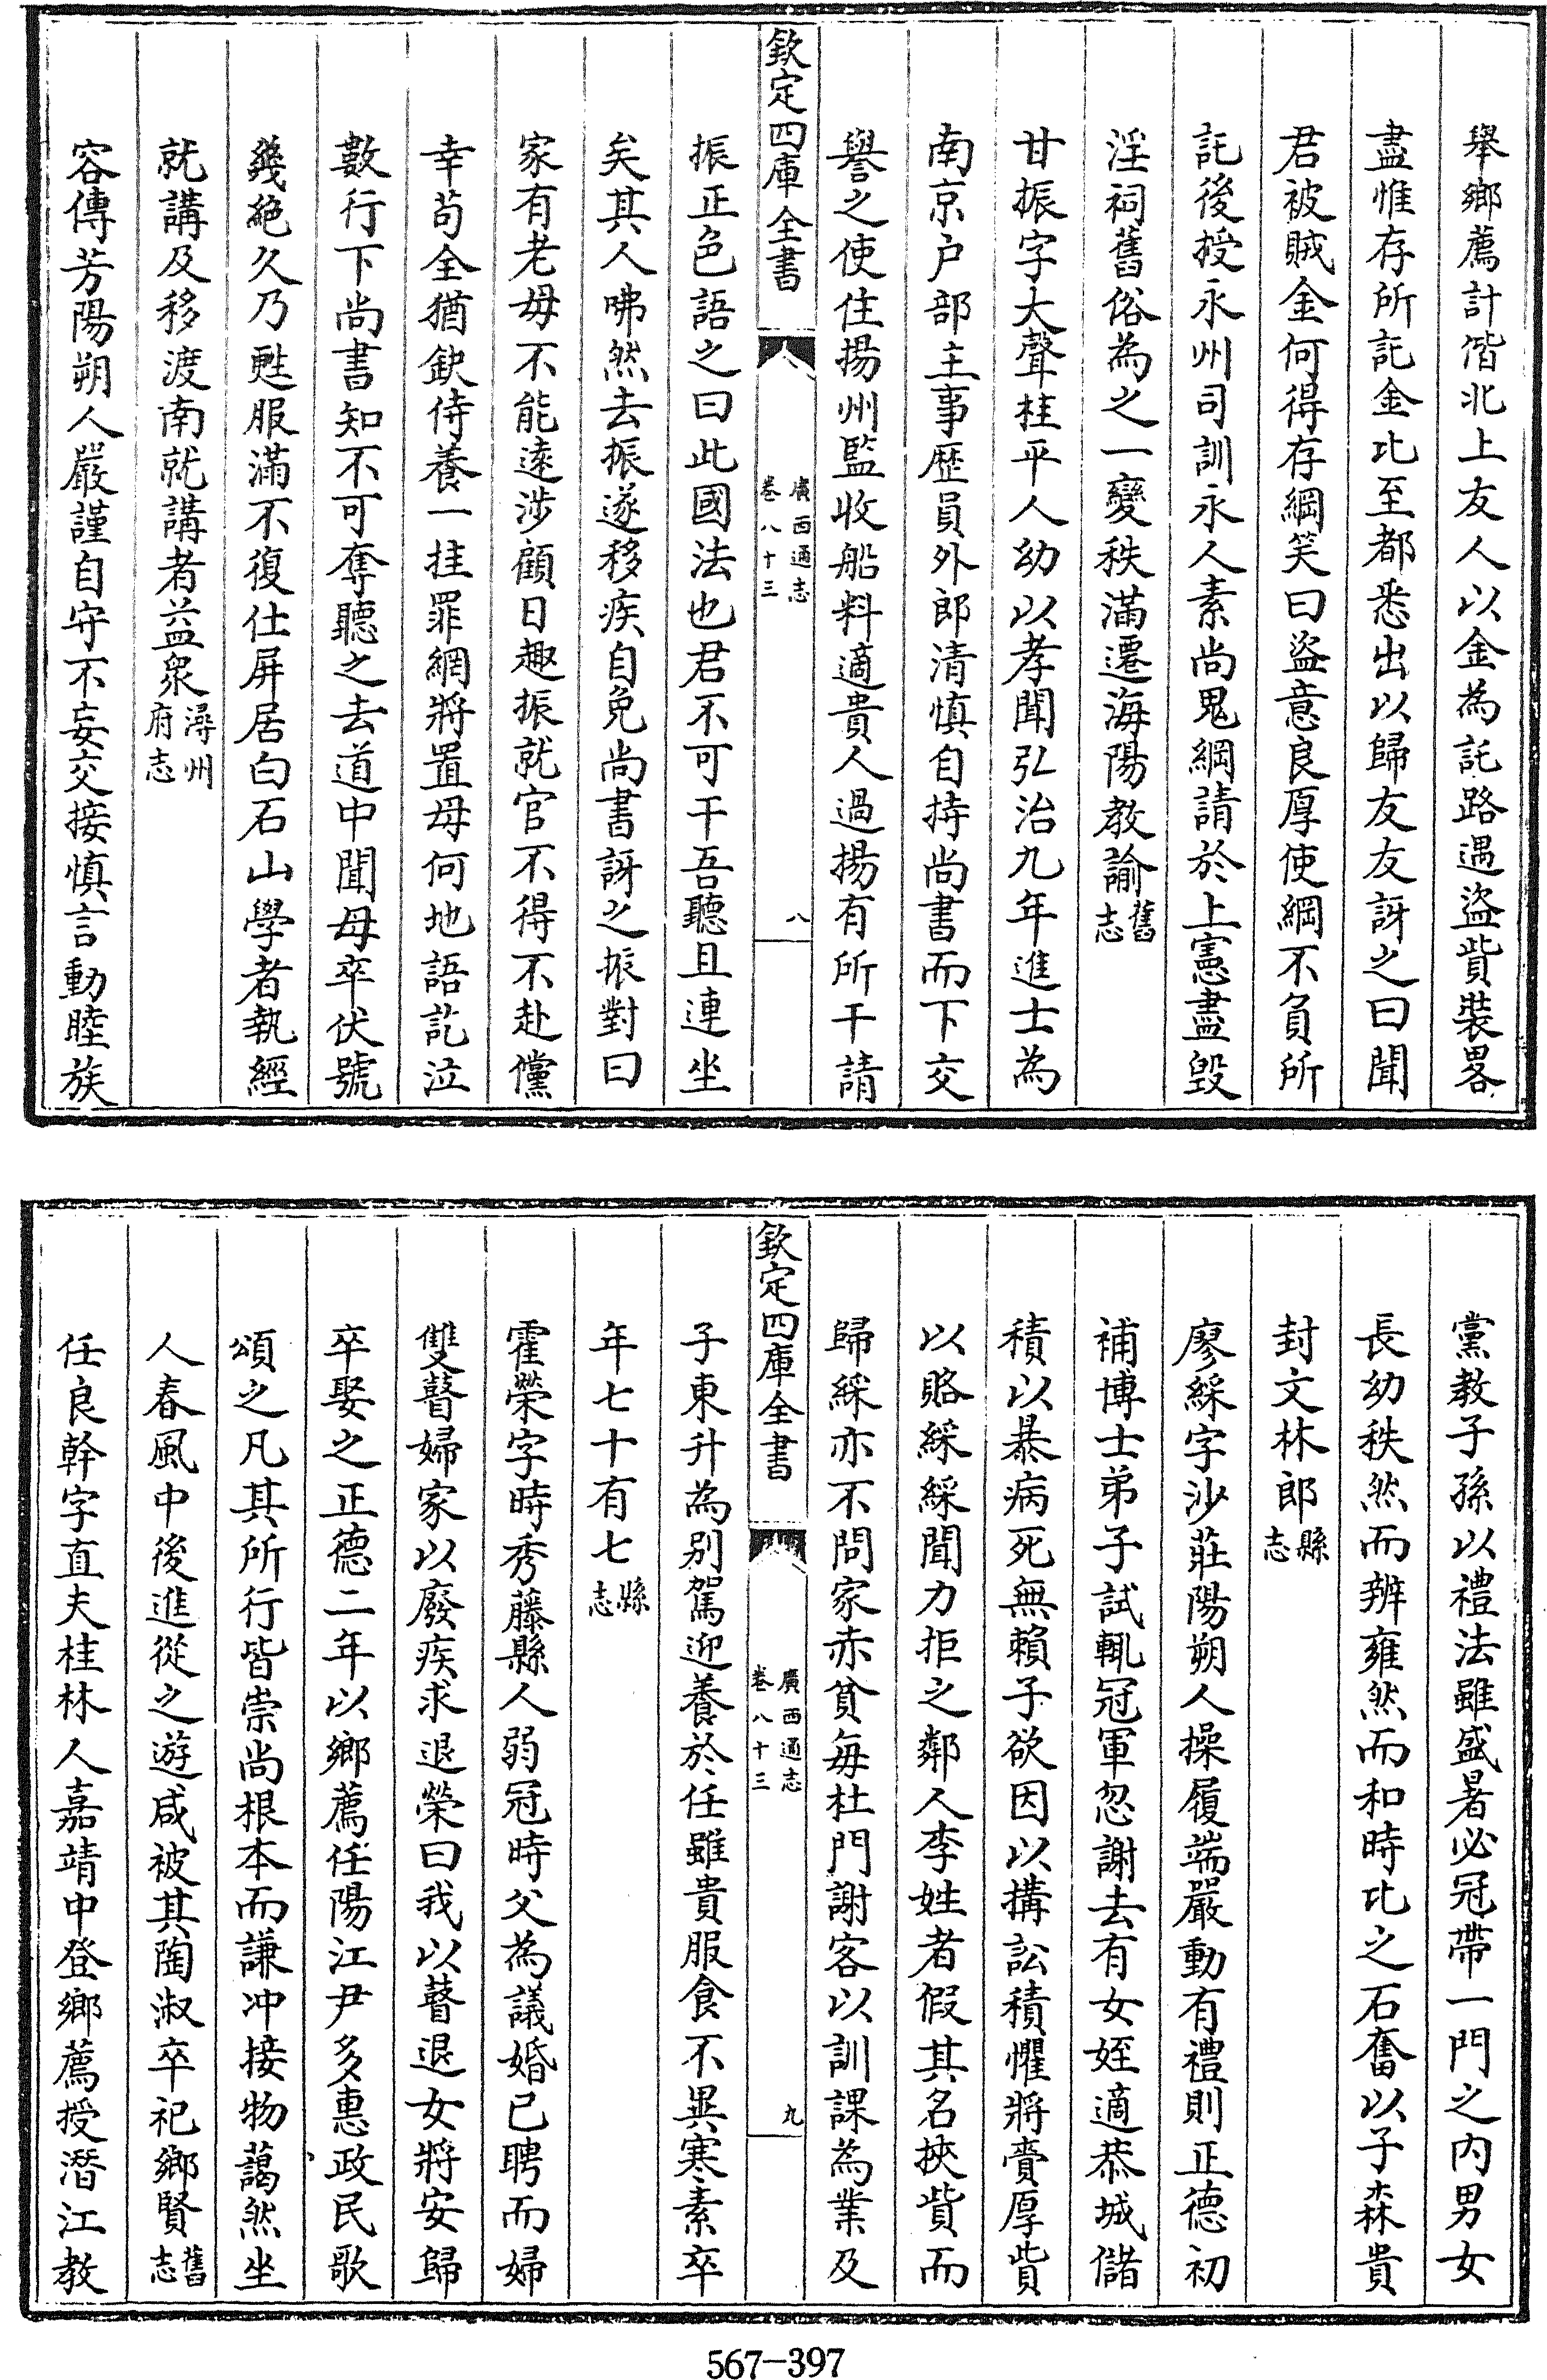 舉鄉薦計偕北上友人以金為託路遇盜貲裝畧
盡惟存所託金比至都悉出以歸友友訝之曰聞
君被賊金何得存綱笑曰盜意良厚使綱不負所
託後授永州司訓永人素尚鬼綱請於上憲盡毀
淫祠舊俗為之一變秩滿遷海陽教諭舊志
甘振字大聲桂平人幼以孝聞弘治九年進士為
南京户部主事歴員外郎清慎自持尚書而下交
譽之使住揚州監收船料適貴人過揚有所干請
欽定四庫全書
廣西通志
卷八十三
八
振正色語之曰此國法也君不可干吾聽且連坐
矣其人咈然去振遂移疾自免尚書訝之振對曰
家有老母不能遠涉顧日趣振就官不得不赴儻
幸苟全猶缺侍養一挂罪網將置母何地語訖泣
數行下尚書知不可奪聽之去道中聞母卒伏號
幾絶久乃甦服滿不復仕屏居白石山學者執經
就講及移渡南就講者益衆潯州府志
容傳芳陽朔人嚴謹自守不妄交接慎言動睦族
黨教子孫以禮法雖盛暑必冠帶一門之内男女
長幼秩然而辨雍然而和時比之石奮以子森貴
封文林郎縣志
廖綵字沙莊陽朔人操履端嚴動有禮則正德初
補博士弟子試輒冠軍忽謝去有女姪適恭城儲
積以暴病死無賴子欲因以搆訟積懼將賫厚貲
以賂綵綵聞力拒之鄰人李姓者假其名挾貲而
歸綵亦不問家赤貧毎杜門謝客以訓課為業及
欽定四庫全書
廣西通志
卷八十三
九
子東升為别駕迎養於任雖貴服食不異寒素卒
年七十有七縣志
霍榮字時秀藤縣人弱冠時父為議婚已聘而婦
雙瞽婦家以廢疾求退榮曰我以瞽退女將安歸
卒娶之正德二年以鄉薦任陽江尹多惠政民歌
頌之凡其所行皆崇尚根本而謙冲接物藹然坐
人春風中後進從之遊咸被其陶淑卒祀鄉賢舊志
任良幹字直夫桂林人嘉靖中登鄉薦授潛江教
567-397